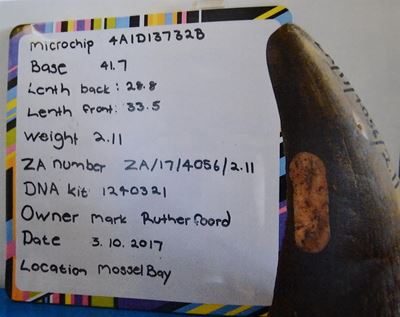 Microchip 4A1D13732B
Base 41.7
Lenth back: 28.8
Lenth front: 33.5
Weight 2.11
ZA number ZA/17/4056/2.11
DNA kit 1240321
Owner Mark Rutherfoord
Date 3.10.2017
Location Mossel Bay